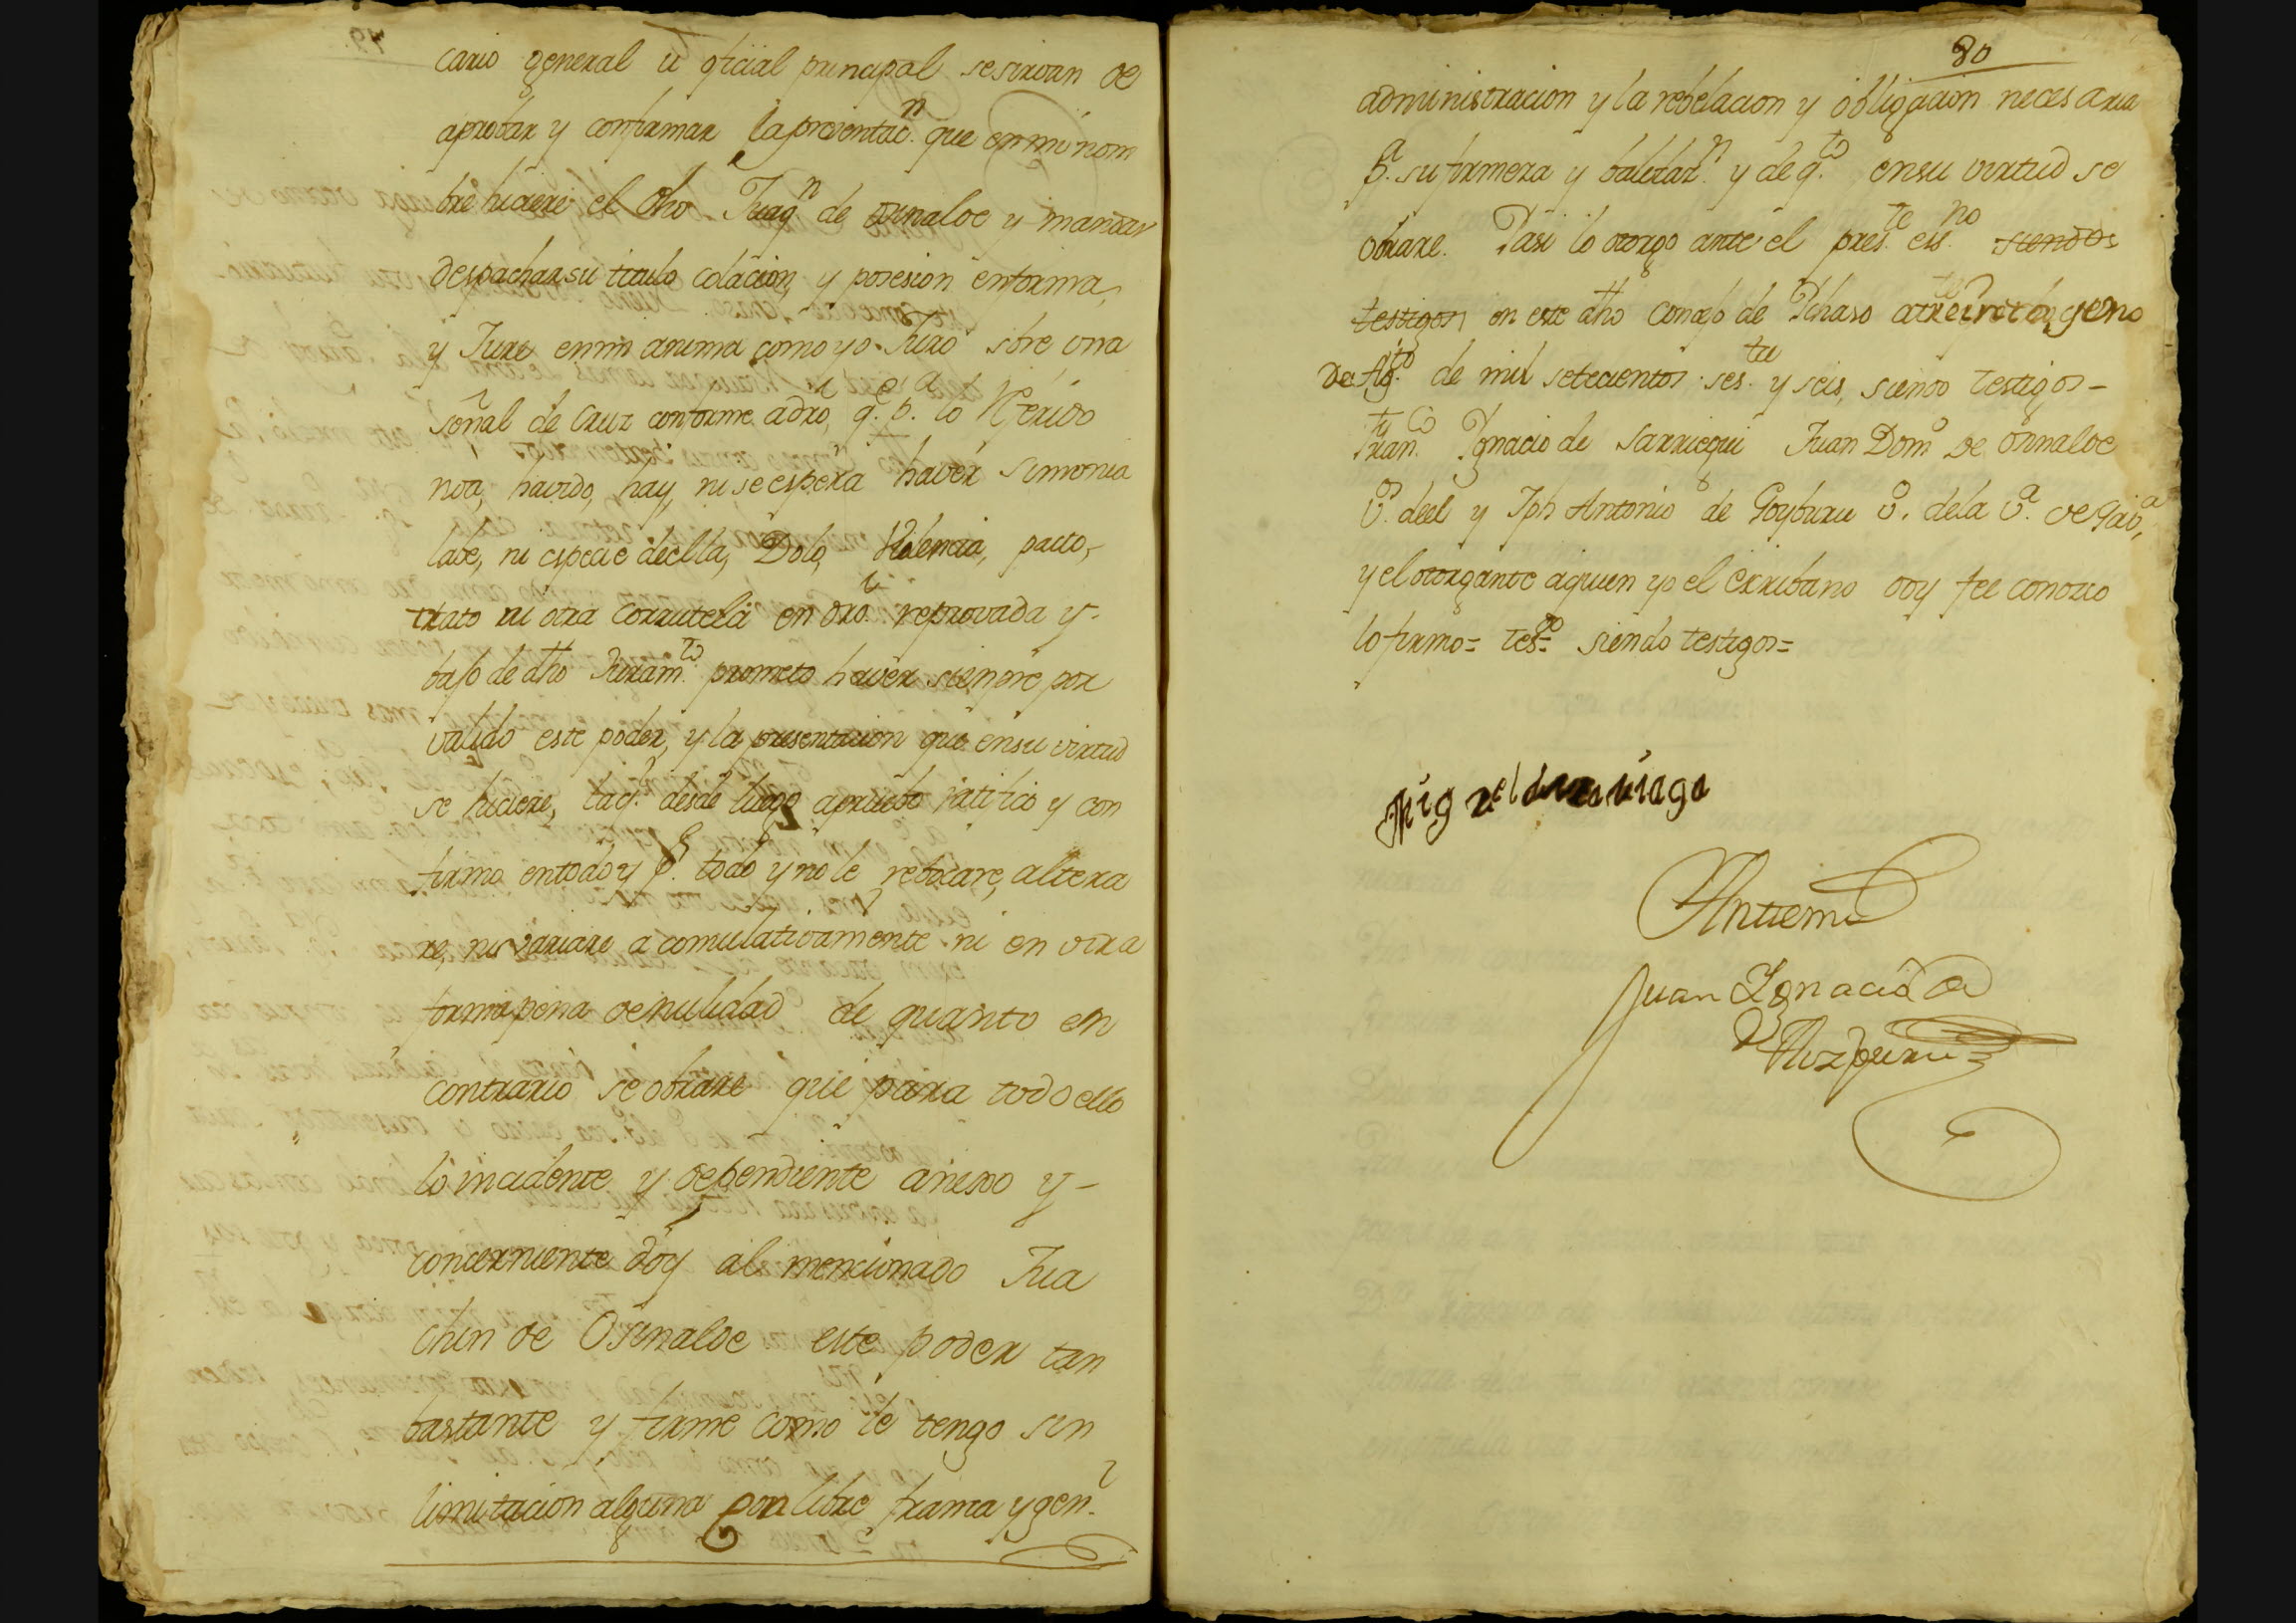 cario general ú oficial principal se sirvan de
aprobar y confirmar la presentac.n que en mi nom
bre hiciere el dho Juaq.n de Orinalde y mandar
despachar su titulo colacion, y posesion en forma,
y Juro en mi anima como yo Juro sôre vna
señal de Cruz conforme a dró, q.e p.a lo referido
noa, havido, hay, ni se espera haver simonia
labe, ni especie de ella, Dolo, Violencia, pacto,
trato ni otra corrutela en dró. reprovada y
bajo de dho Juram.to prometo haver siempre por
valido este poder, y la presentacion que en su virtud
se hiciere, laq.l desde luego apruebo ratifico y con
firmo en todo y p.r todo y no le rebocare, altera
re, ni variare acomulativamente ni en otra
forma pena de nulidad de quanto en
contrario se obrare que para todo ello
lo incidente y dependiente anexo y
concerniente doy al mencionado Jua
chin de Orinalde este poder tan
bastante y firme como le tengo sin
limitacion alguna con libre franca y gen.l
80
administracion y la rebelacion y obligacion necesaria
p.a su firmeza y balidaz.n y de q.to en su virtud se
obrare. Y asi lo otorgo ante el pres.te ess.no siendo
testigos en este dho concejo de Ychaso a treinta y uno
de Ag.to de mil setecientos ses.ta y seis, siendo testigos
Fran.co Ygnacio de Sarriegui Juan Dom.o de Orinalde
v.os de el y Jph Antonio de Goyburu v.o de la v.a de Gav.a,
y el otorgante a quien yo el escribano doy fee conozco
lo firmo= tes.go= siendo testigos=
Miguel de arauiaga
Antemi
Juan Ygnacio de
Aizpuru